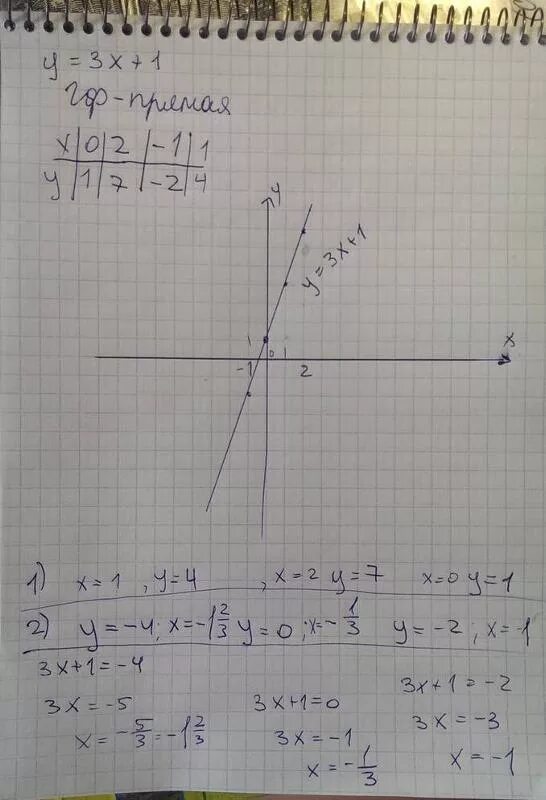 y = 3x+1
Гр-прямая
x | 0 | 2 | -1 | 1
y | 1 | 7 | -2 | 4
y
y = 3x+1
x
1
0
1
-1
2
1) x=1, y=4, x=2 y=7 x=0 y=1
2) y=-4; x=-1 2/3 y=0; x=-1/3 y=-2; x=-1
3x+1=-4
3x=-5
x=-5/3=-1 2/3
3x+1=0
3x=-1
x=-1/3
3x+1=-2
3x=-3
x=-1